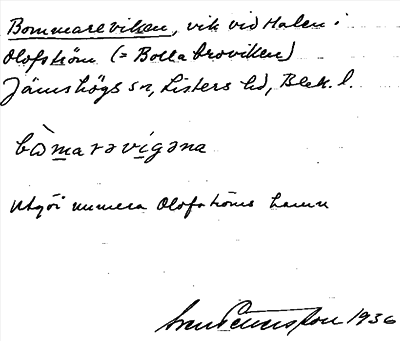 Bommareviken, vik vid Halen i
Olofström (= Bollabroviken)
Jämshögs sn, Listers hd, Blek. l.
bὼmarəvigəna
Utgör numera Olofströms hamn
Sven Benson 1936